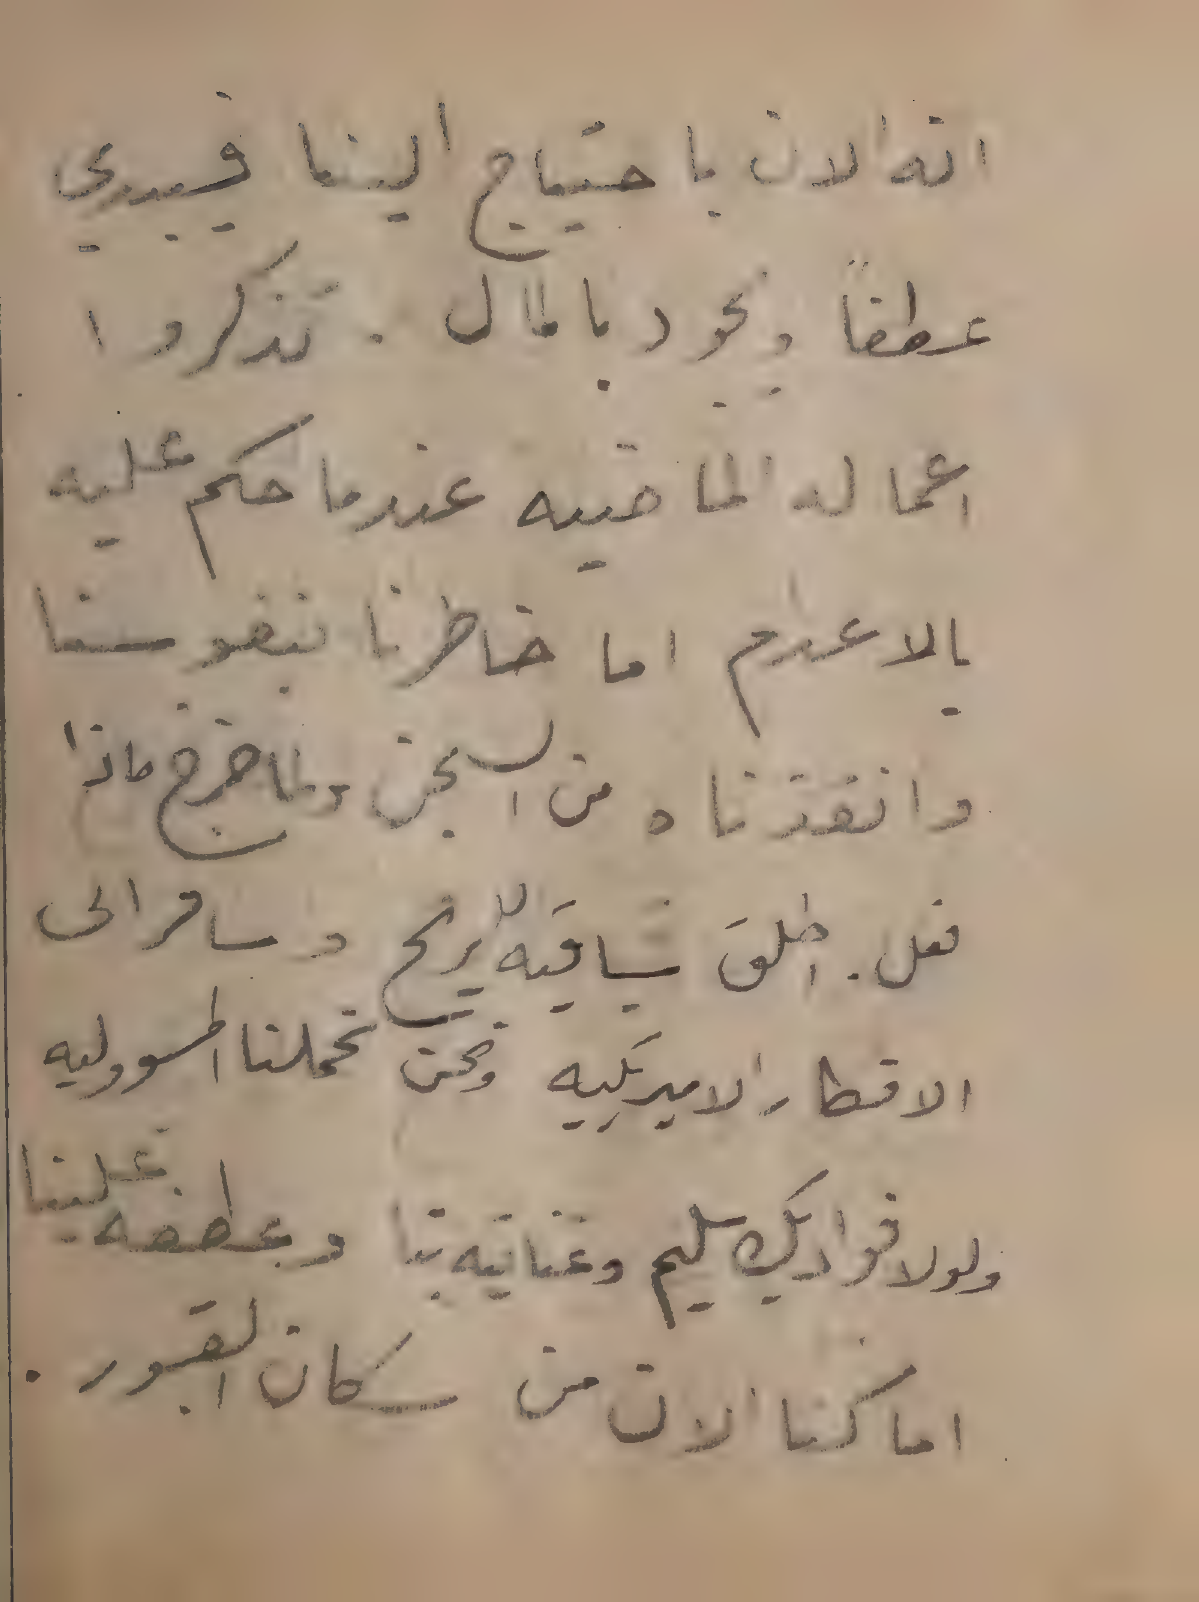 انه الان باحتياج الينا فيبدي
عطفاً ويجود بالمال . تذكروا
اعماله الماضيه عندما حكم عليه
بالاعدام اما خاطرنا بنفوسنا
وانقذناه من السجن ولما خرج ماذا
فعل . اطلق سيقانه للريح وسافر الى
الاقطار الاميركيه ونحن تحملنا المسووليه
ولولا فواد بك سليم وعنايته بنا وعطفه علينا
اما كنا الان من سكان القبور .